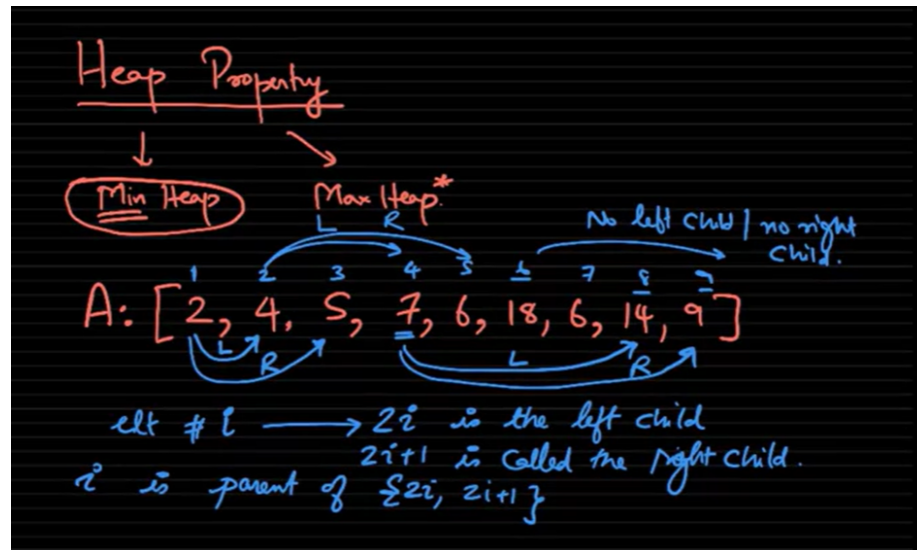 Heap Property
Min Heap Max Heap*
L R No left child / no right
child.
1 2 3 4 5 6 7 8 9
A: [2, 4, 5, 7, 6, 18, 6, 14, 9]
L R L R
elt # i → 2i is the left child
2i+1 is called the right child.
i is parent of {2i, 2i+1}